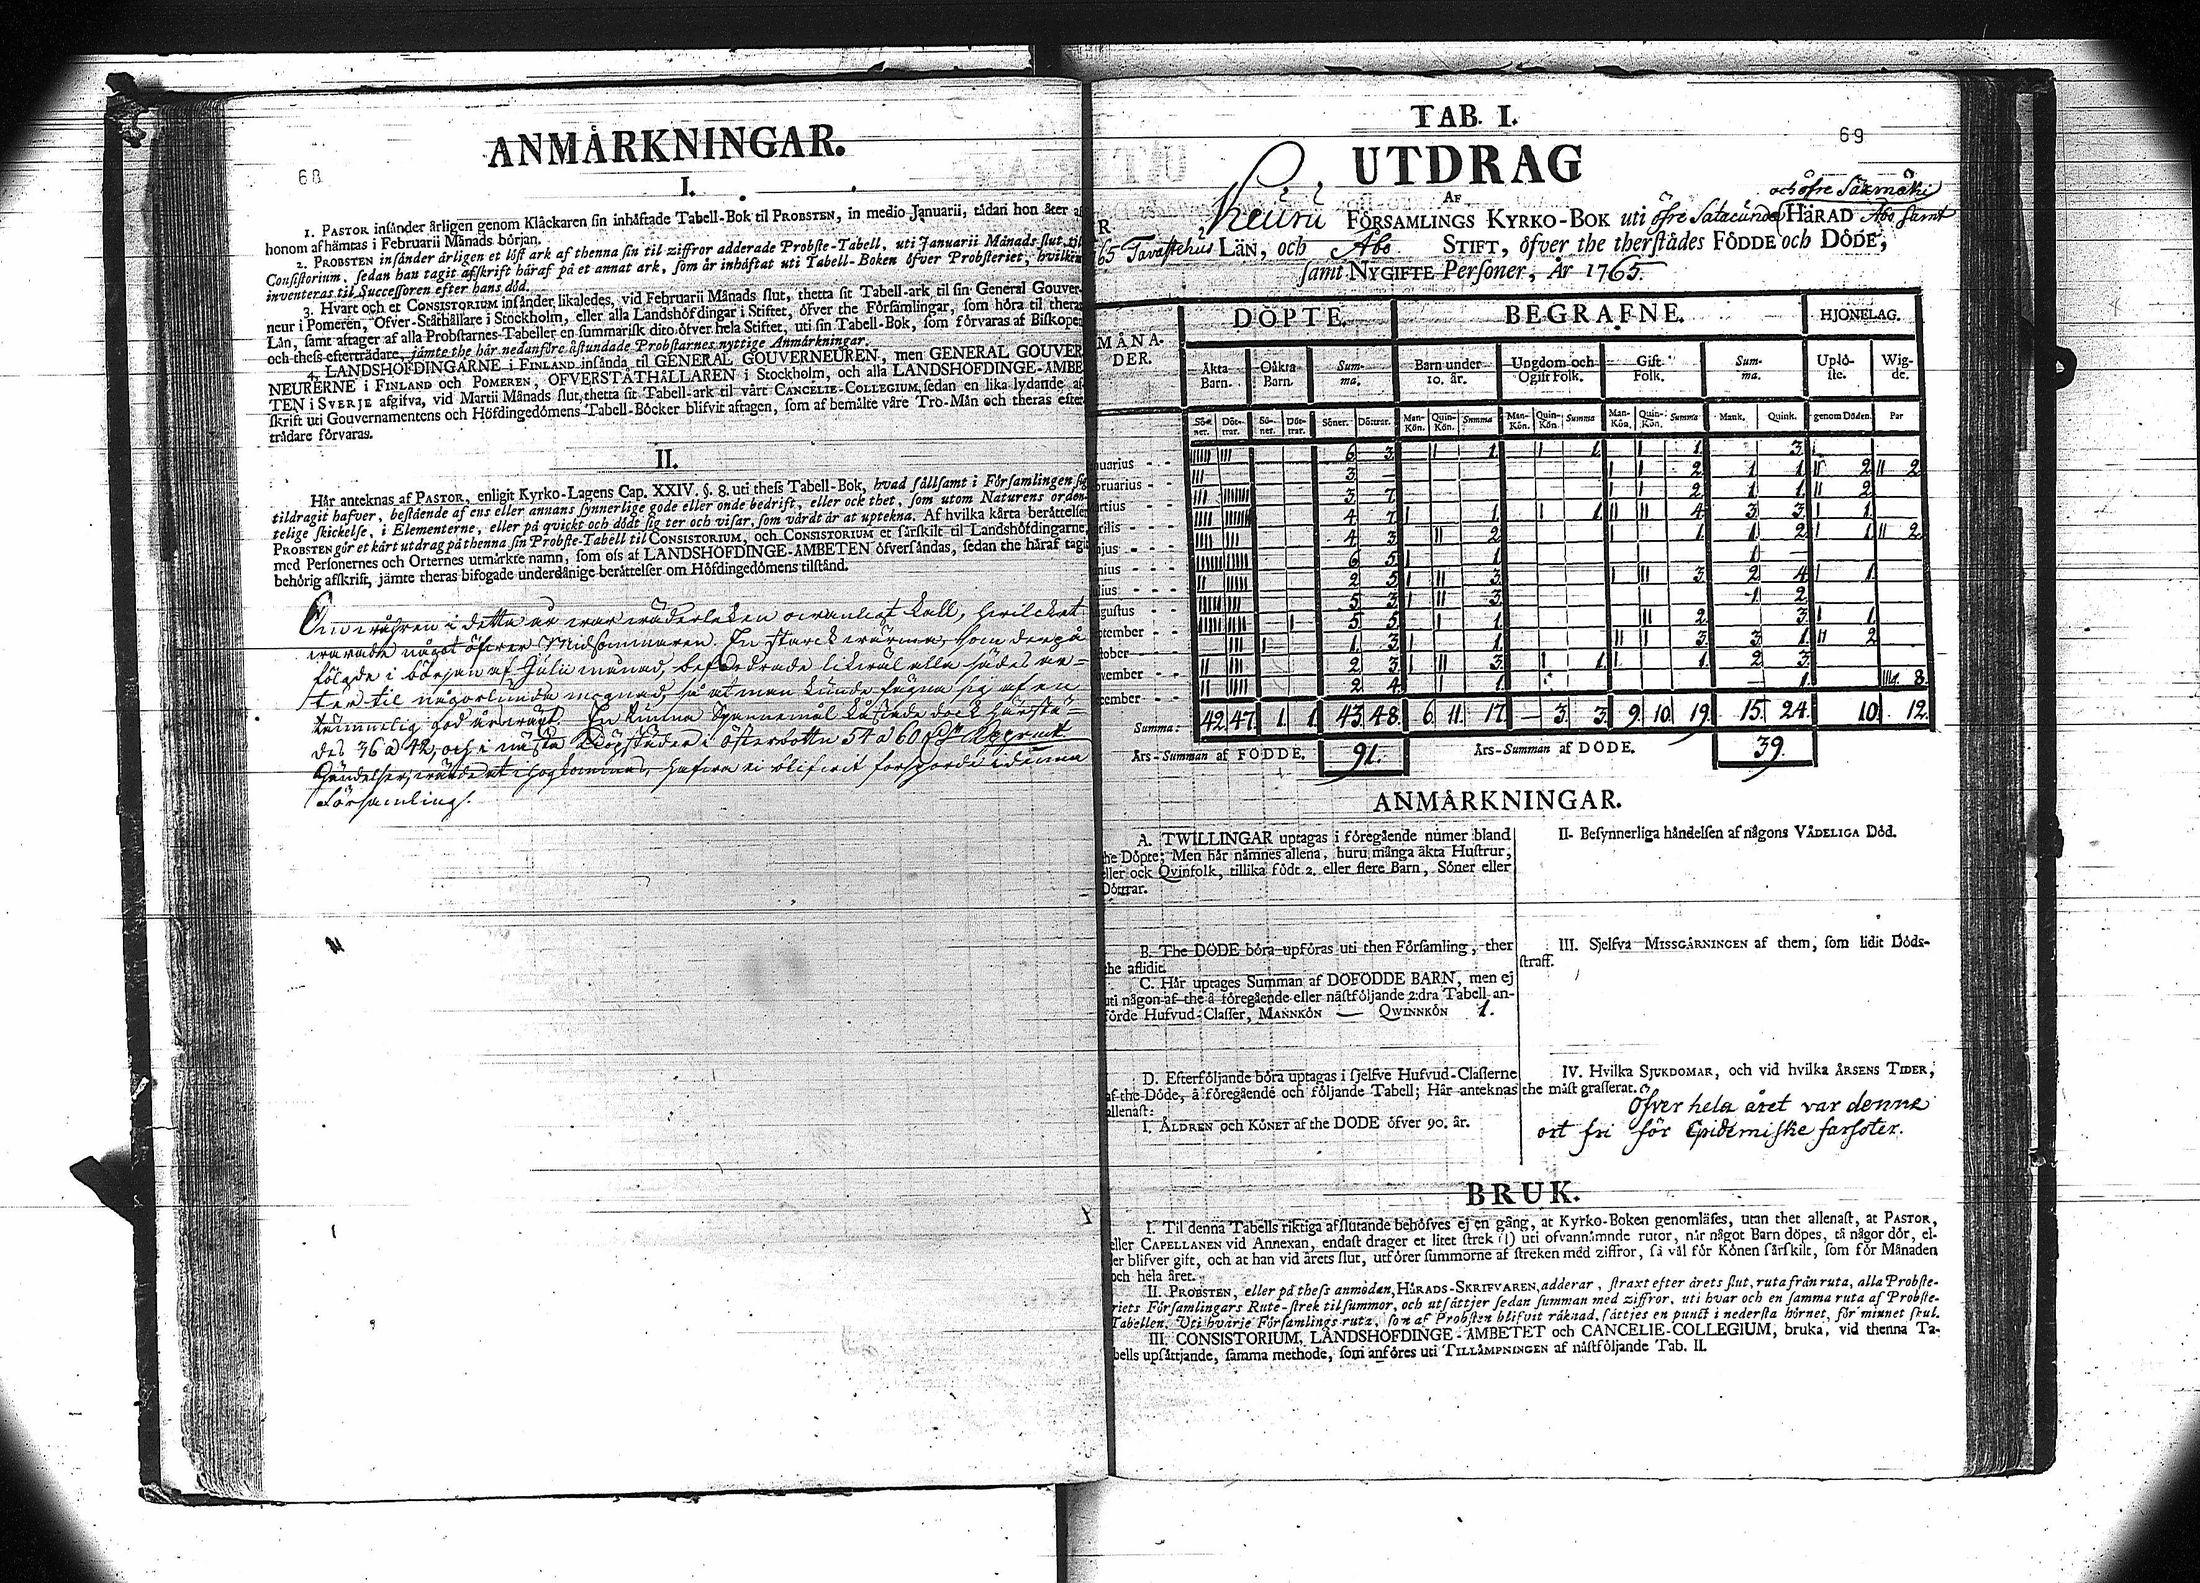 68
ANMÅRKNINGAR.
I.
1. PASTOR insånder årligen genom Klåckaren sin inhåftade Tabell-Bok til PROBSTEN, in medio Januarii, tådan hon åter af
honom afhåmtas i Februarii Månads början.
2. PROBSTEN insånder årligen et löst ark af thenna sin til ziffror adderade Probste-Tabell, uti Januarii Månads slut, til
Consistorium, sedan han tagit afskrift håraf på et annat ark, som år inhåftat uti Tabell-Boken öfver Probsteriet, hvilken
inventeras til Successoren efter hans död.
3. Hvart och et CONSISTORIUM insånder likaledes, vid Februarii Månads slut, thetta sit Tabell-ark til sin General Gouver-
neur i Pomeren, Öfver-Ståthållare i Stockholm, eller alla Landshöfdingar i Stiftet, öfver the Församlingar, som höra til theras
Lån, samt aftager af alla Probstarnes-Tabeller en summarisk dito öfver hela Stiftet, uti sin Tabell-Bok, som förvaras af Biskopen
och thess efterträdare, jåmte the hår nedanföre åstundade Probstarnes nyttige Anmårkningar.
4. LANDSHÖFDINGARNE i FINLAND insånda til GENERAL GOUVERNEUREN, men GENERAL GOUVER-
NEURERNE i FINLAND och POMEREN, ÖFVERSTÅTHÅLLAREN i Stockholm, och alla LANDSHÖFDINGE-ÅMBE-
TEN i SVERJE afgifva, vid Martii Månads slut, thetta sit Tabell-ark til vårt CANCELIE-COLLEGIUM, sedan en lika lydande af-
skrift uti Gouvernamentens och Höfdingedömens Tabell-Böcker blifvit aftagen, som af bemålte våre Tro-Mån och theras efter-
trådare förvaras.
II.
Hår anteknas af PASTOR, enligit Kyrko-Lagens Cap. XXIV. §. 8. uti thess Tabell-Bok, hvad sållsamt i Församlingen sig
tildragit hafver, bestående af ens eller annans synnerlige gode eller onde bedrift, eller ock thet, som utom Naturens orden-
telige skickelse, i Elementerne, eller på qvickt och dödt sig ter och visar, som vårdt år at uptekna. Af hvilka kårta beråttelser
PROBSTEN gör et kårt utdrag på thenna sin Probste-Tabell til CONSISTORIUM, och CONSISTORIUM et sårskilt til Landshöfdingarne,
med Personernes och Orternes utmårkte namn, som oss af LANDSHÖFDINGE-ÅMBETEN öfversåndas, sedan the håraf tagit
behörig afskrift, jåmte theras bifogade underdånige beråttelser om Höfdingedömens tilstånd.
Om wåhren i detta år war wäderleken owanligt kall, hwilcket
warade något öfwer Midsommaren. En starck wärma, som derpå
fölgde i början af Julii månad, befordrade likwäl alla sädes ar-
ter til någorlunda mognad, så at man kunde fägna sig af en
temmelig god årswäxt. En tunna Spannemål kåstade dock härstä-
des 36 a 42, och i nästa Köpstäder i österbottn 54 a 60
Händelser, wärde at ihogkommas, hafwa ei blifwit försporde i denna
Församling.
69
TAB. I.
UTDRAG
AF
och öfre Säxmäki
Keuru FÖRSAMLINGS KYRKO-BOK uti öfre Satacunda HÅRAD Åbo samt
Tavastehus LÅN, och Åbo STIFT, öfver the therstådes FÖDDE och DÖDE,
samt NYGIFTE Personer, År 1765.
MÅNA-
DER. DÖPTE. BEGRAFNE. HJONELAG.
Åkta Barn. Oåkra Barn. Summa. Barn under 10. år. Ungdom och Ogift Folk. Gift Folk. Summa. Uplö-ste. Wig-de.
Sö-ner. Döt-trar. Sö-ner. Döt-trar. Söner. Döttrar. Man-Kön. Quin-Kön. Summa Man-Kön. Quin-Kön. Summa Man-Kön. Quin-Kön. Summa Mank. Quink. genom Döden. Par
nuarius - - 6 3 1 1 1 3
bruarius - - 3 2 1 1 2 2
rtius - - 3 7 2 1 1 2
rilis - - 4 7 1 1 4 3 3 1
jus - - 4 3 2 1 1 2 1 2
nius - - 6 5 1 1
lius - - 2 5 3 3 2 4 1
gustus - - 5 3 3 1 2
ptember - - 5 5 1 2 3 1
tober - - 1 3 1 3 3 1 2
vember - - 2 3 3 1 1 2 3
cember - - 2 4 1 1 8
Summa: 42 47 1 1 43 48 6 11 17 — 3 3 9 10 19 15 24 10 12
Års-Summan af FÖDDE. 91. Års-Summan af DÖDE. 39.
ANMÅRKNINGAR.
A. TWILLINGAR uptagas i föregående numer bland
he Döpte; Men hår nåmnes allena, huru många åkta Hustrur,
ller ock Qvinfolk, tillika födt 2. eller flere Barn, Söner eller
Döttrar.
B. The DÖDE böra upföras uti then Församling, ther
he aflidit.
C. Hår uptages Summan af DÖFÖDDE BARN, men ej
uti någon af the å föregående eller nåstföljande 2:dra Tabell an-
förde Hufvud-Classer, MANNKÖN — QWINNKÖN 1.
D. Efterföljande böra uptagas i sjelfve Hufvud-Classerne
af the Döde, å föregående och följande Tabell; Hår anteknas
allenast:
I. ÅLDREN och KÖNET af the DÖDE öfver 90. år.
II. Besynnerliga håndelsen af någons VÅDELIGA Död.
III. Sjelfva MISSGÅRNINGEN af them, som lidit Döds-
straff.
IV. Hvilka SJUKDOMAR, och vid hvilka ÅRSENS TIDER,
the måst grasserat.
Öfver hela året var denne
ort fri för Epidemiske farsoter.
BRUK.
I. Til denna Tabells riktiga afslutande behöfves ej en gång, at Kyrko-Boken genomläses, utan thet allenast, at PASTOR,
eller CAPELLANEN vid Annexan, endast drager et litet strek (1) uti ofvannåmnde rutor, når något Barn döpes, tå någor dör, el-
ler blifver gift, och at han vid årets slut, utförer summorne af streken med ziffror, så vål för Könen sårskilt, som för Månaden
och hela året.
II. PROBSTEN, eller på thess anmodan, HÅRADS-SKRIFVAREN, adderar, straxt efter årets slut, ruta från ruta, alla Probste-
riets Församlingars Rute-strek til summor, och utsåttjer sedan summan med ziffror, uti hvar och en samma ruta af Probste-
Tabellen. Uti hvarje Församlings ruta, som af Probsten blifvit råknad, såttjes en punct i nedersta hörnet, för minnet skul.
III. CONSISTORIUM, LANDSHÖFDINGE-ÅMBETET och CANCELIE-COLLEGIUM, bruka, vid thenna Ta-
bells upsåttjande, samma methode, som anföres uti TILLÅMPNINGEN af nåstföljande Tab. II.